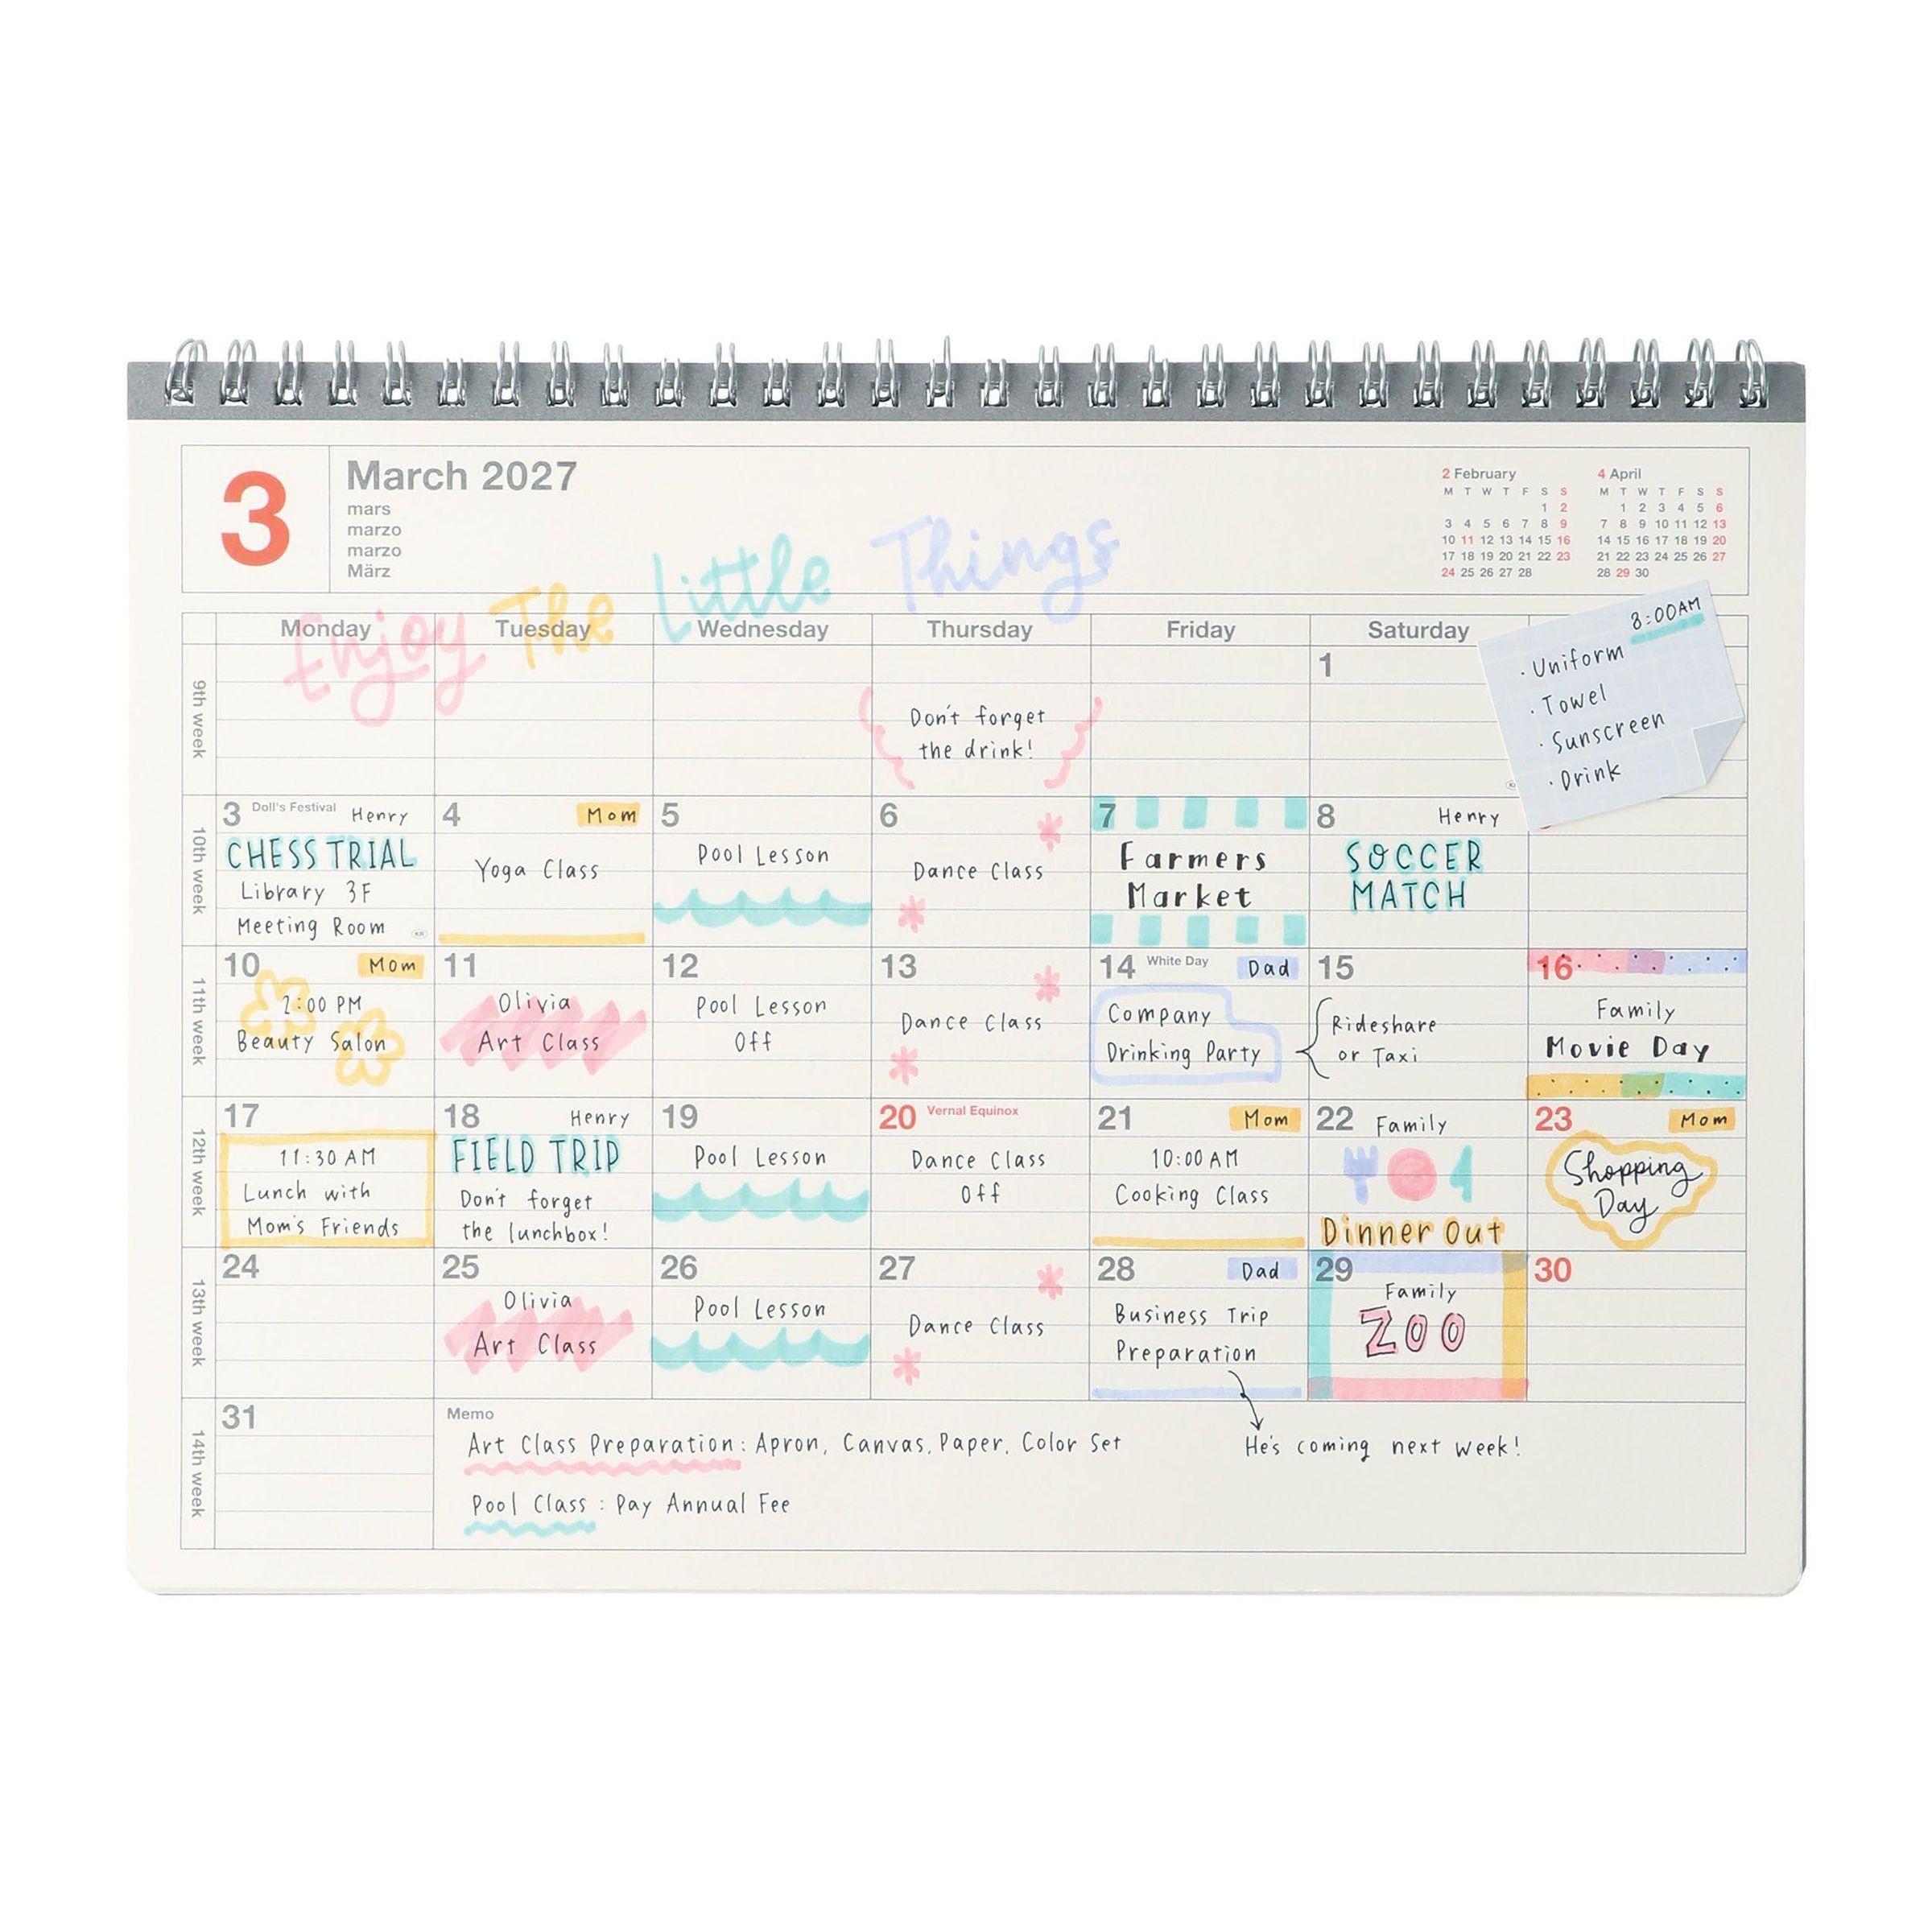 3
March 2027
mars
marzo
marzo
März
2 February
M T W T F S S
1 2
3 4 5 6 7 8 9
10 11 12 13 14 15 16
17 18 19 20 21 22 23
24 25 26 27 28
4 April
M T W T F S S
1 2 3 4 5 6
7 8 9 10 11 12 13
14 15 16 17 18 19 20
21 22 23 24 25 26 27
28 29 30
Enjoy The Little Things
Monday Tuesday Wednesday Thursday Friday Saturday
8:00AM
· Uniform
· Towel
· Sunscreen
· Drink
9th week
Don't forget
the drink!
1
10th week
3 Doll's Festival Henry
CHESS TRIAL
Library 3F
Meeting Room
4 Mom
Yoga Class
5
Pool Lesson
6
Dance Class
7
Farmers
Market
8 Henry
SOCCER
MATCH
11th week
10 Mom
2:00 PM
Beauty Salon
11
Olivia
Art Class
12
Pool Lesson
Off
13
Dance Class
14 White Day Dad
Company
Drinking Party
15
Rideshare
or Taxi
16
Family
Movie Day
12th week
17
11:30 AM
Lunch with
Mom's Friends
18 Henry
FIELD TRIP
Don't forget
the lunchbox!
19
Pool Lesson
20 Vernal Equinox
Dance Class
Off
21 Mom
10:00 AM
Cooking Class
22 Family
Dinner Out
23 Mom
Shopping
Day
13th week
24
25
Olivia
Art Class
26
Pool Lesson
27
Dance Class
28 Dad
Business Trip
Preparation
29
Family
ZOO
30
14th week
31
Memo
Art Class Preparation: Apron, Canvas, Paper, Color Set
He's coming next week!
Pool Class: Pay Annual Fee